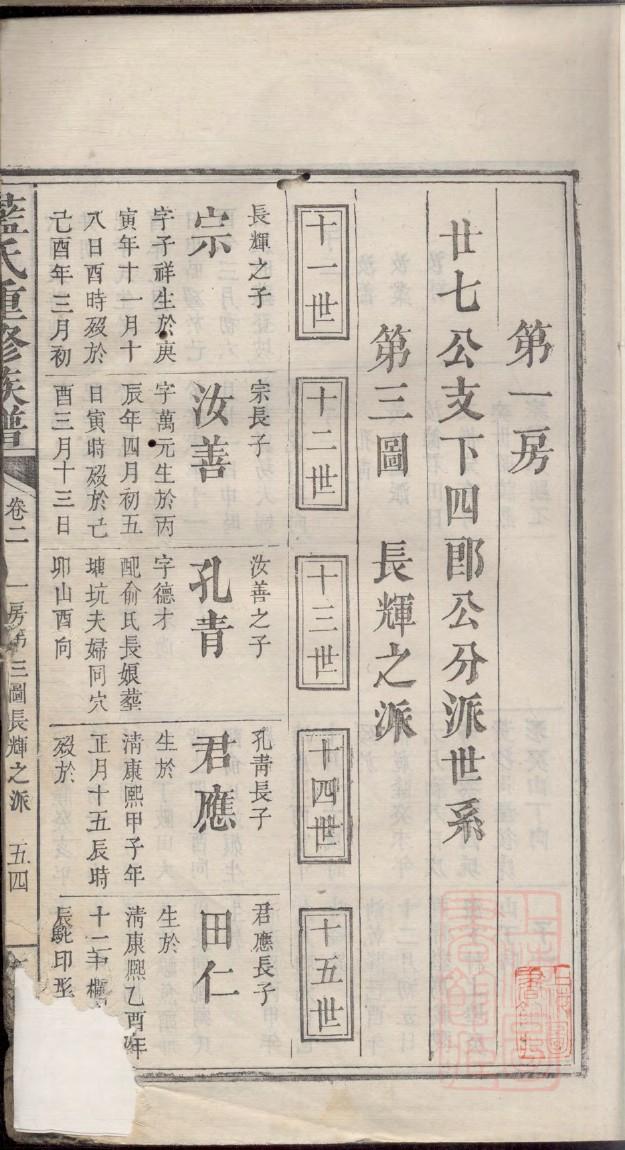 第一房
廿七公支下四郎公分派世系
第三圖　長輝之派
十一世
十二世
十三世
十四世
十五世
長輝之子
宗
字子祥生於庚
寅年十一月十
八日酉時歿於
己酉年三月初
宗長子
汝善
字萬元生於丙
辰年四月初五
日寅時歿於己
酉三月十三日
汝善之子
孔青
字德才
配俞氏長娘葬
塘坑夫婦同穴
卯山酉向
孔青長子
君應
生於
清康熙甲子年
正月十五辰時
歿於
君應長子
田仁
生於
清康熙乙酉年
十二
辰
藍氏重修族譜
卷二
一房第三圖長輝之派
五四